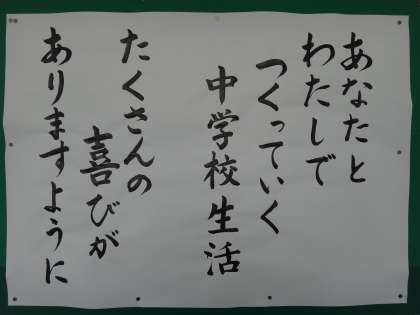 あなたと
わたしで
つくっていく
中学校生活
たくさんの
喜びが
ありますように